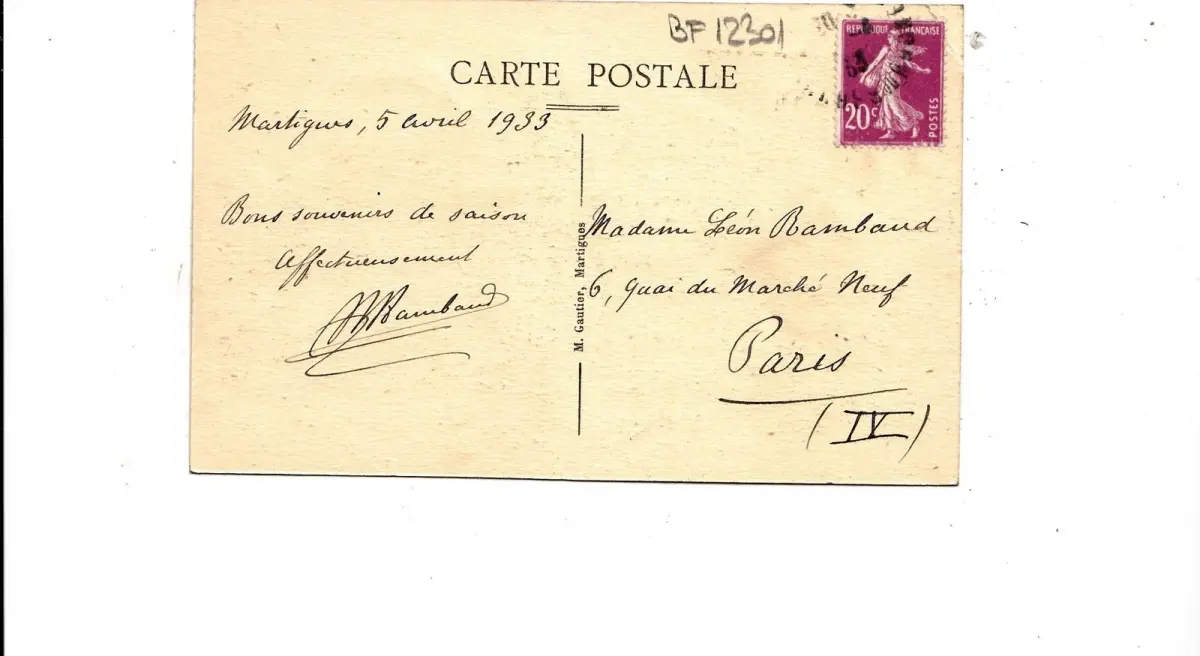 BF 12301
REPUBLIQUE FRANÇAISE
20c
POSTES
CARTE POSTALE
Martigues, 5 Avril 1933
Bons souvenirs de saison
Affectueusement
Rambaud
M. Gautier, Martigues
Madame Léon Rambaud
6, Quai du Marché Neuf
Paris
(IV)